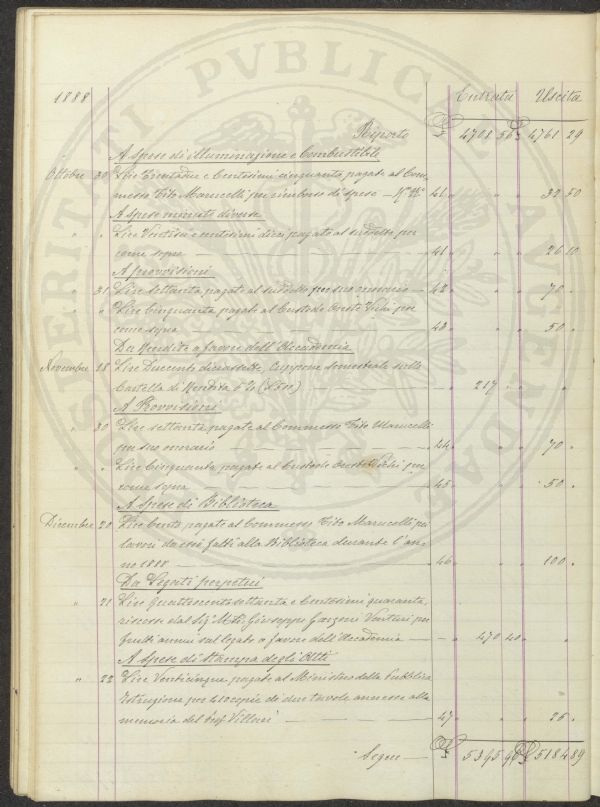 1888 Entrata Uscita
Riporto £ 4701 56 £ 4761 29
A Spese di illuminazione e Combustibile
Ottobre 30 Lire Trentadue e Centesimi cinquanta pagate al Com-
messo Tito Marucelli per rimborso di spese — 41 " " " 32 50
A Spese minute diverse
" " Lire Ventisei e centesimi dieci pagate al suddetto per
come sopra — 41 " " " 26 10
A provvisioni
" 31 Lire settanta pagate al suddetto per suo onorario — 42 " " " 70 "
" " Lire Cinquanta pagate al Custode Oreste per
come sopra — 43 " " " 50 "
Da Rendite a favore dell'Accademia
Novembre 28 Lire Duecento diciassette, Cuppone semestrale sulla
Cartella di Rendita 5% — " 217 " " "
A Provvisioni
" 30 Lire settanta pagate al Commesso Tito Marucelli
per suo onorario — 44 " " " 70 "
" " Lire Cinquanta pagate al Custode Oreste per
come sopra — 45 " " " 50 "
A Spese di Biblioteca
Dicembre 20 Lire Cento pagate al Commesso Tito Marucelli per
lavori da esso fatti alla Biblioteca durante l'an-
no 1888 — 46 " " " 100 "
Da Legati perpetui
" 21 Lire Quattrocento settanta e Centesimi quaranta,
riscosse dal Sig. Giuseppe Garzoni Venturi per
frutti annui sul legato a favore dell'Accademia — " 470 40 " "
A Spese di Stampa degli Atti
" 22 Lire Venticinque pagate al Ministero della Pubblica
Istruzione per le copie di due tavole annesse alla
memoria del Villari — 47 " " " 25 "
Segue — £ 5395 96 £ 5184 89
PUBLICAE
AUGENDAE